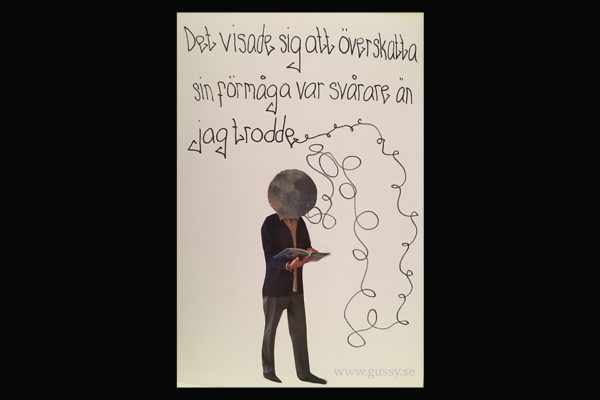 Det visade sig att överskatta
sin förmåga var svårare än
jag trodde
www.gussy.se